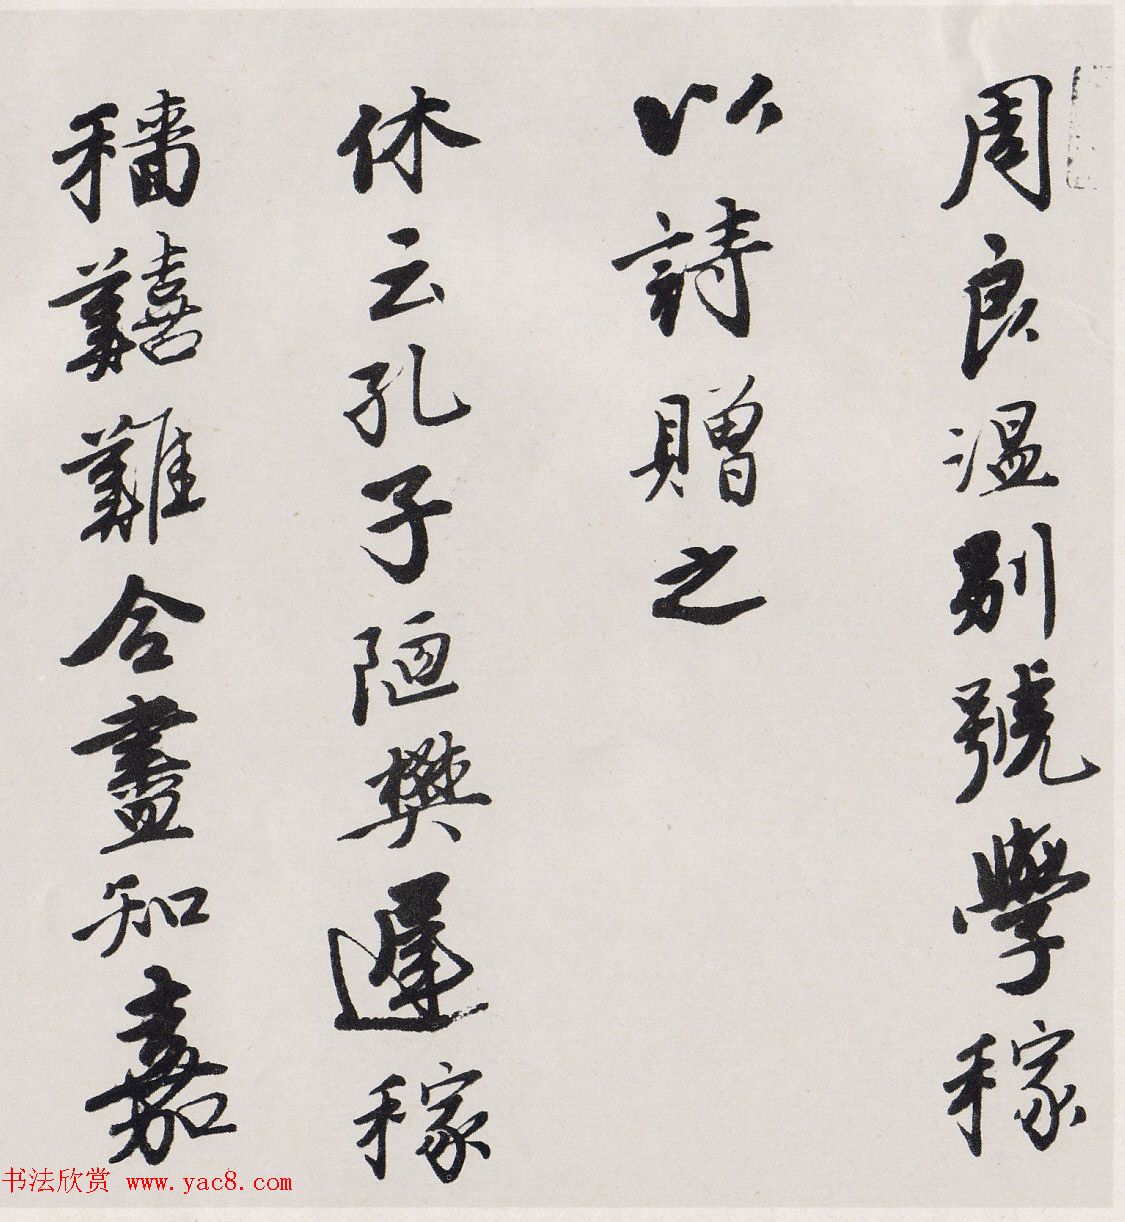 周良溫别號學稼
以詩贈之
休云孔子陋樊遲稼
穡囏難合盡知嘉
书法欣赏 www.yac8.com